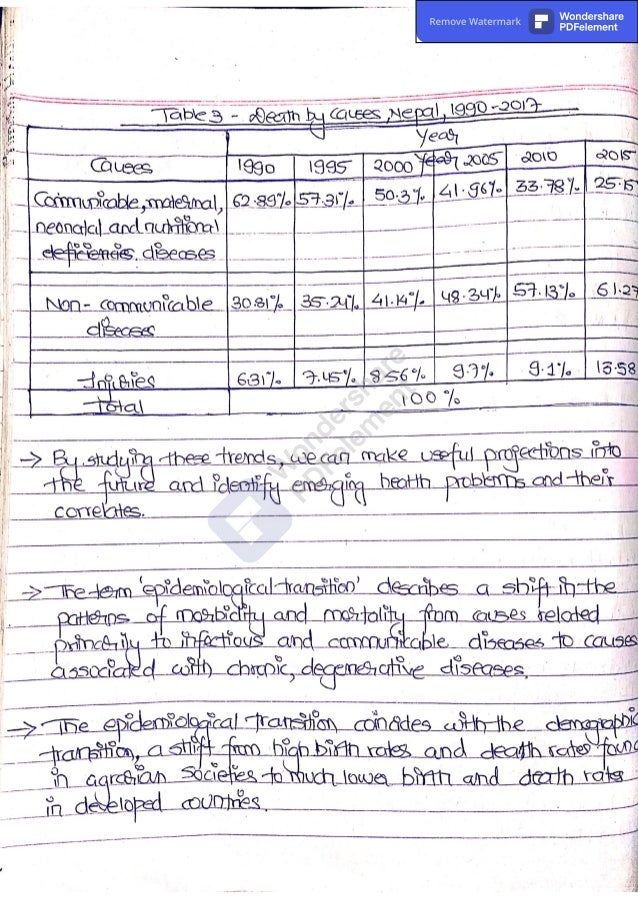 Remove Watermark Wondershare PDFelement
Table 3 - Death by causes, Nepal, 1990-2017
Year
Causes 1990 1995 2000 Year 2005 2010 2015
Communicable, maternal, 62.89% 57.31% 50.3% 41.96% 33.78% 25.15
neonatal and nutritional
deficiencies diseases
Non-communicable 30.81% 35.24% 41.14% 48.34% 57.13% 61.27
diseases
Injuries 6.31% 7.45% 8.56% 9.7% 9.1% 13.58
Total 100%
Wondershare
PDFelement
→ By studying these trends, we can make useful projections into
the future and identify emerging health problems and their
correlates.
→ The term 'epidemiological transition' describes a shift in the
patterns of morbidity and mortality from causes related
primarily to infectious and communicable diseases to causes
associated with chronic, degenerative diseases.
→ The epidemiological transition coincides with the demographic
transition, a shift from high birth rates and death rates found
in agrarian societies to much lower birth and death rates
in developed countries.